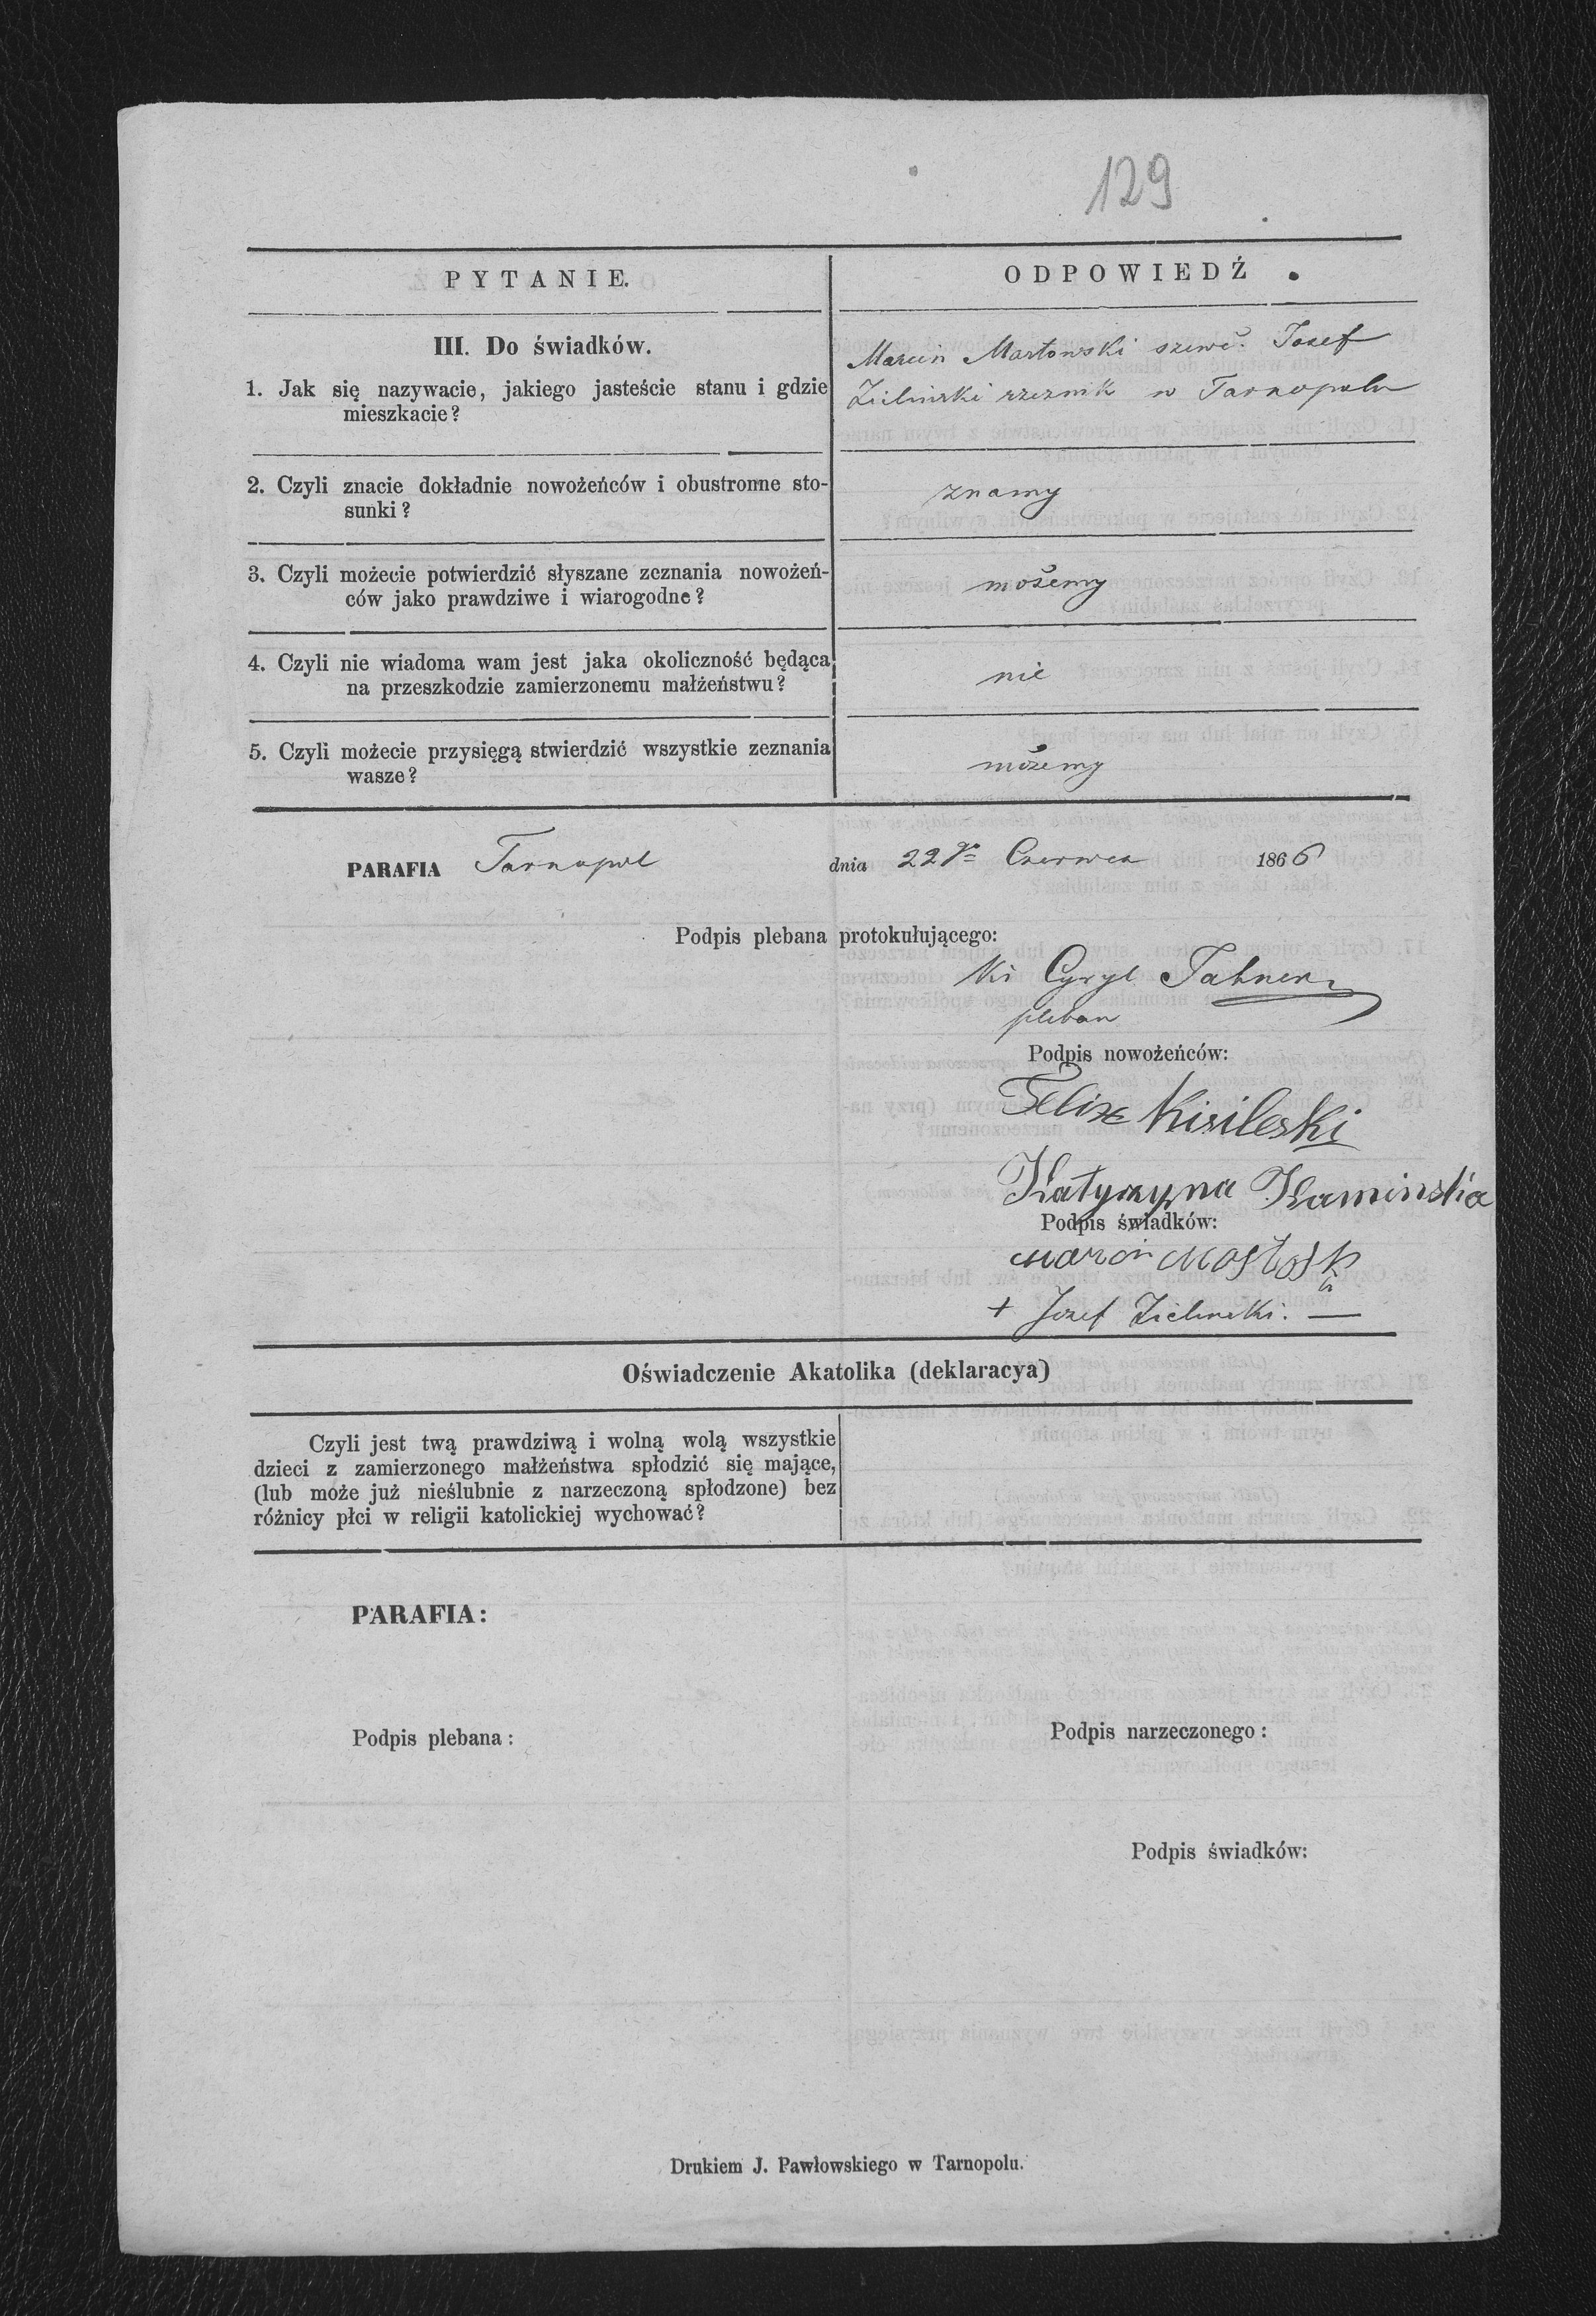 129
PYTANIE.
ODPOWIEDŹ
III. Do świadków.
1. Jak się nazywacie, jakiego jasteście stanu i gdzie
mieszkacie?
Marcin Martowski szewc. Jozef
Zielinski rzeznik w Tarnopolu
2. Czyli znacie dokładnie nowożeńców i obustronne sto-
sunki?
znamy
3. Czyli możecie potwierdzić słyszane zeznania nowożeń-
ców jako prawdziwe i wiarogodne?
możemy
4. Czyli nie wiadoma wam jest jaka okoliczność będąca
na przeszkodzie zamierzonemu małżeństwu?
nie
5. Czyli możecie przysięgą stwierdzić wszystkie zeznania
wasze?
możemy
PARAFIA Tarnopol dnia 22go Czerwca 1866
Podpis plebana protokułującego:
Cyryl
pleban
Podpis nowożeńców:
Felix Kisileski
Katyrzyna Kaminska
Podpis świadków:
+ Jozef Zielinski. —
Oświadczenie Akatolika (deklaracya)
Czyli jest twą prawdziwą i wolną wolą wszystkie
dzieci z zamierzonego małżeństwa spłodzić się mające,
(lub może już nieślubnie z narzeczoną spłodzone) bez
różnicy płci w religii katolickiej wychować?
PARAFIA:
Podpis plebana:
Podpis narzeczonego:
Podpis świadków:
Drukiem J. Pawłowskiego w Tarnopolu.